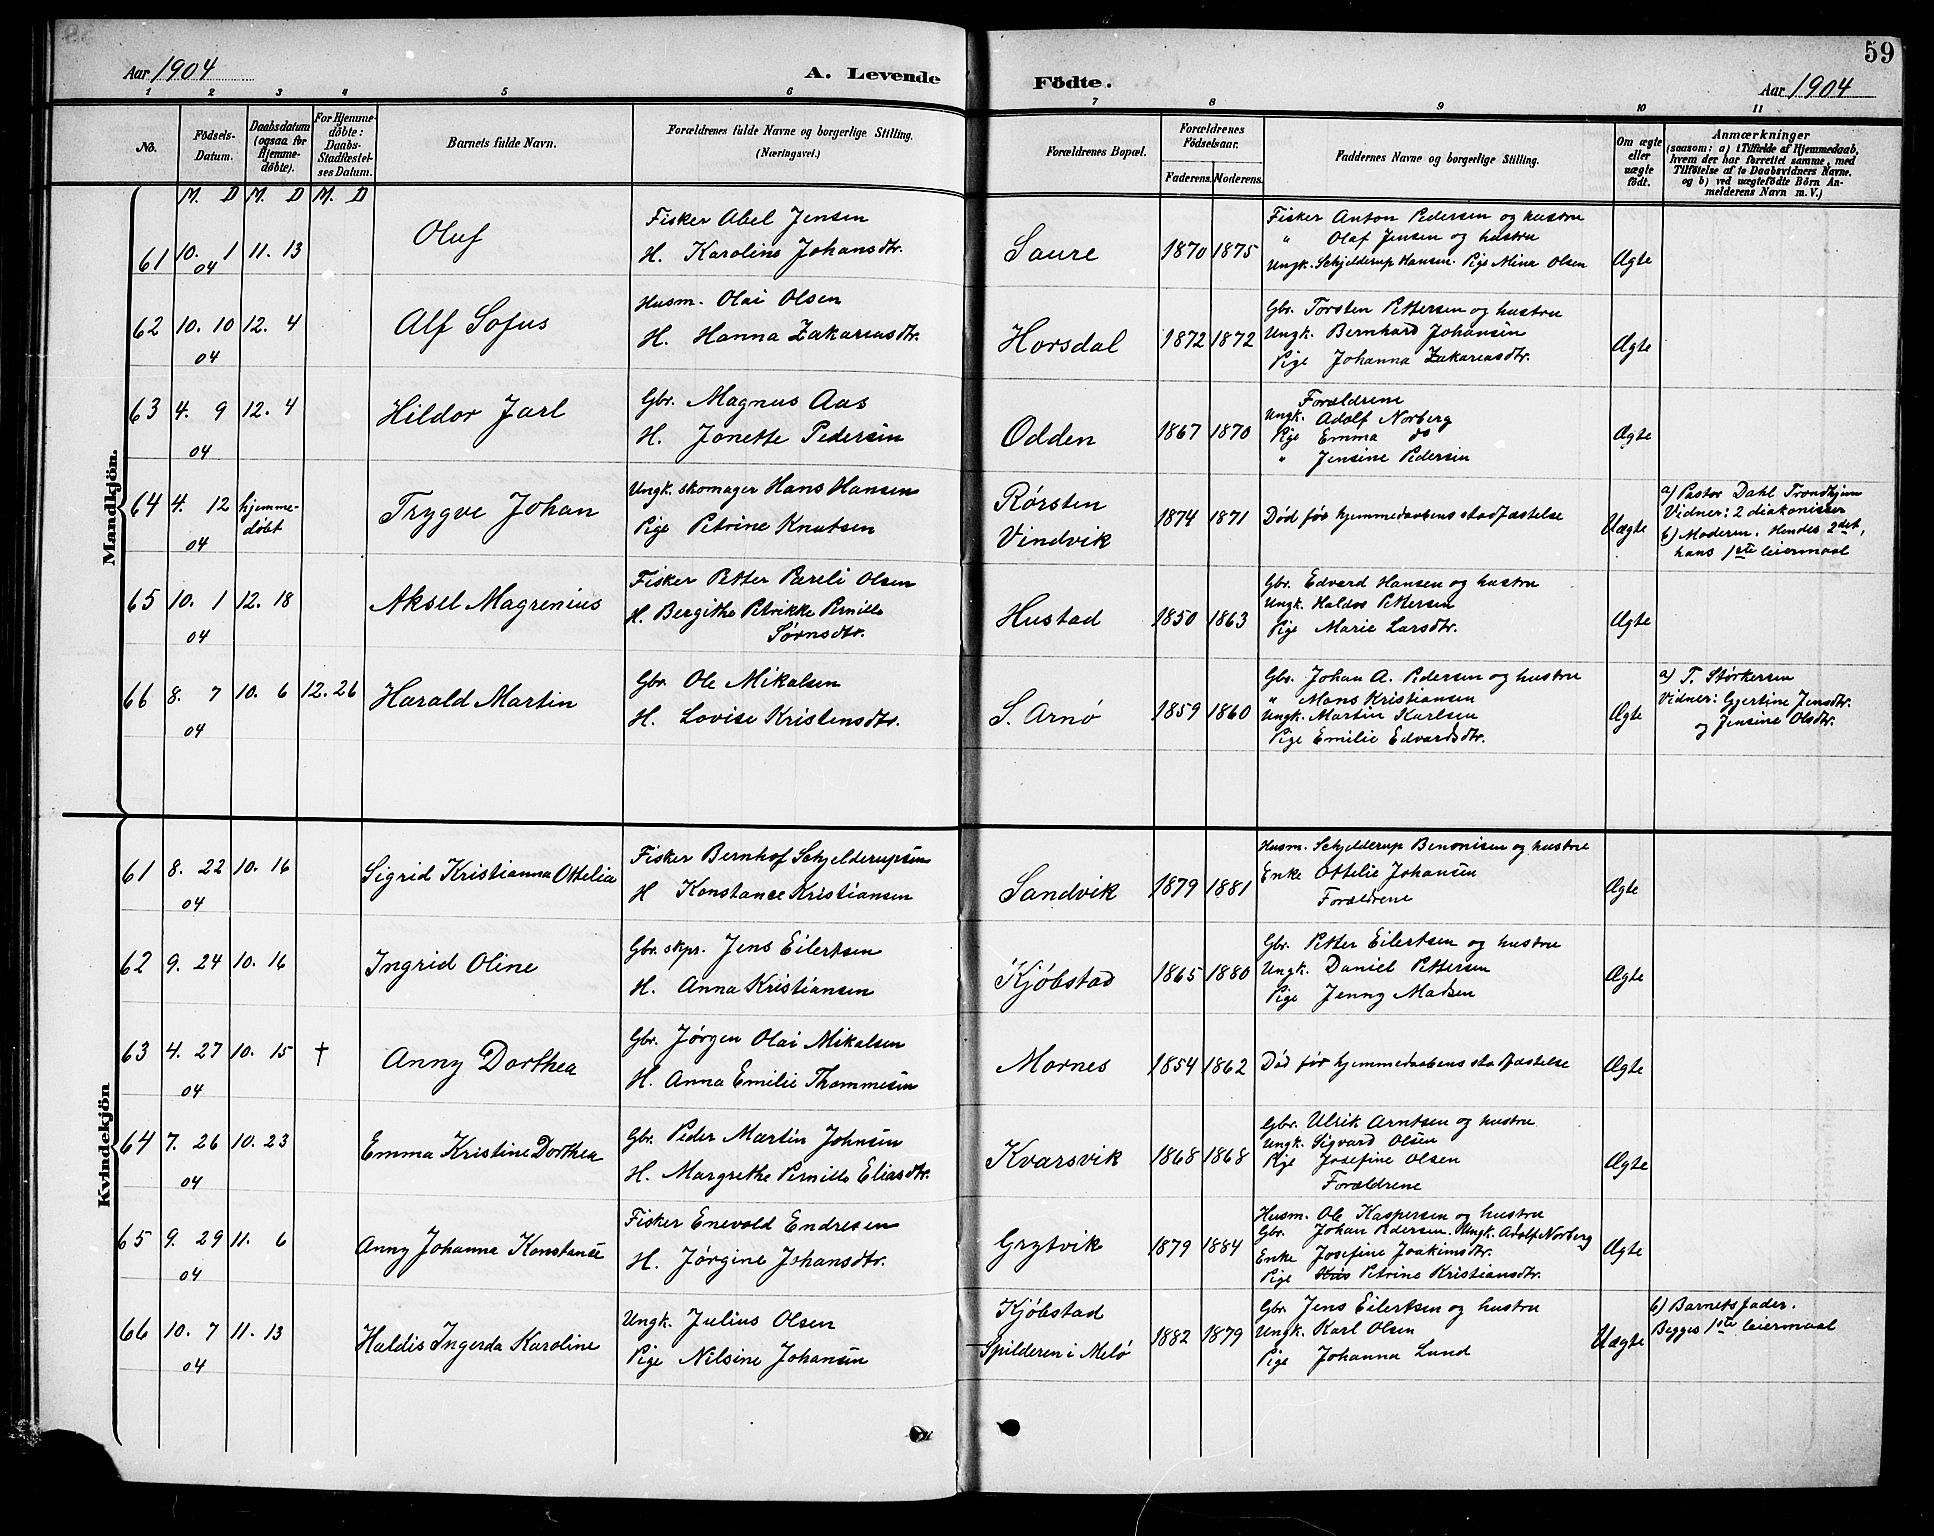 59
Aar 1904
A. Levende Födte.
Aar 1904
1 2 3 4 5 6 7 8 9 10 11
No.
Födsels-Datum.
Daabsdatum (ogsaa for Hjemmedöbte).
For Hjemmedöbte: Daabs-Stadfæstelses Datum.
Barnets fulde Navn.
Forældrenes fulde Navne og borgerlige Stilling. (Næringsvei.)
Forældrenes Bopæl.
Forældrenes Födselsaar.
Faderens. Moderens.
Faddernes Navne og borgerlige Stilling.
Om ægte eller uægte födt.
Anmærkninger
(saasom: a) i Tilfælde af Hjemmedaab,
hvem der har forrettet samme, med
Tilföielse af to Daabsvidners Navne.
og b) ved uægtefödte Börn Anmelderens Navn m. V.)
M. D M. D M. D
Mandkjön.
61 10. 1 04 11. 13
Oluf
Fisker Abel Jensen
H. Karoline Johansdtr.
Saure
1870 1875
Fisker Anton Pedersen og hustru
" Olaf Jensen og hustru
Ungk. Schjelderup Hansen. Pige Mina Olsen
Ægte
62 10. 10 04 12. 4
Alf Sofus
Husm. Olai Olsen
H. Hanna Zakariasdtr.
Horsdal
1872 1872
Gbr. Torsten Pettersen og hustru
Ungk. Bernhard Johansen
Pige Johanna Zakariasdtr.
Ægte
63 4. 9 04 12. 4
Hildor Jarl
Gbr. Magnus Aas
H. Jonette Pedersen
Odden
1867 1870
Forældrene
Ungk. Adolf Norberg
Pige Emma do
" Jensine Pedersen
Ægte
64 4. 12 04 hjemmedøbt
Trygve Johan
Ungk. skomager Hans Hansen
Pige Petrine Knutsen
Rørsten
Vindvik
1874 1871
Død før hjemmedaabens stadfæstelse
Uægte
a) Pastor Dahl Trondhjem
Vidner: 2 diakonisser
b) Moderen. Hendes 2det,
hans 1ste leiermaal
65 10. 1 04 12. 18
Aksel Magrenius
Fisker Petter Pareli Olsen
H. Bergithe Petrikke Pernille
Sørnsdtr.
Hustad
1850 1863
Gbr. Edvard Hansen og hustru
Ungk. Haldos Pettersen
Pige Marie Larsdtr.
Ægte
66 8. 7 04 10. 6 12. 26
Harald Martin
Gbr. Ole Mikalsen
H. Lovise Kristensdtr.
S. Arnø
1859 1860
Gbr. Johan A. Pedersen og hustru
" Mons Kristiansen
Ungk. Martin Karlsen
Pige Emilie Edvardsdtr.
Ægte
a) T. Størkersen
Vidner: Gjertine Jensdtr.
og Jensine Olsdtr.
Kvindekjön
61 8. 22 04 10. 16
Sigrid Kristianna Ottelia
Fisker Bernhof Schjelderupsen
H Konstance Kristiansen
Sandvik
1879 1881
Husm. Schjelderup Benonisen og hustru
Enke Ottelie Johansen
Forældrene
Ægte
62 9. 24 04 10. 16
Ingrid Oline
Gbr. skpr. Jens Eilertsen
H. Anna Kristiansen
Kjøbstad
1865 1880
Gbr. Petter Eilertsen og hustru
Ungk. Daniel Pettersen
Pige Jenny Madsen
Ægte
63 4. 27 04 10. 15 †
Anny Dorthea
Gbr. Jørgen Olai Mikalsen
H. Anna Emilie Thommesen
Mornes
1854 1862
Død før hjemmedaabens stadfæstelse
Ægte
64 7. 26 04 10. 23
Emma Kristine Dorthea
Gbr. Peder Martin Johnsen
H. Margrethe Pernille Eliasdtr.
Kvarsvik
1868 1868
Gbr. Ulrik Arntsen og hustru
Ungk. Sigvard Olsen
Pige Josefine Olsen
Forældrene
Ægte
65 9. 29 04 11. 6
Anny Johanna Konstanse
Fisker Enevold Endresen
H. Jørgine Johansdtr.
Grytvik
1879 1884
Husm. Ole Kaspersen og hustru
Gbr. Johan Pedersen. Ungk. Adolf Norberg
Enke Josefine Joakimsdtr.
Pige Kris Petrine Kristiansdtr.
Ægte
66 10. 7 04 11. 13
Haldis Ingerda Karoline
Ungk. Julius Olsen
Pige Nilsine Johansen
Kjøbstad
Spilderen i Melø
1882 1879
Gbr. Jens Eilertsen og hustru
Ungk. Karl Olsen
Pige Johanna Lund
Uægte
b) Barnets fader.
Begges 1ste leiermaal